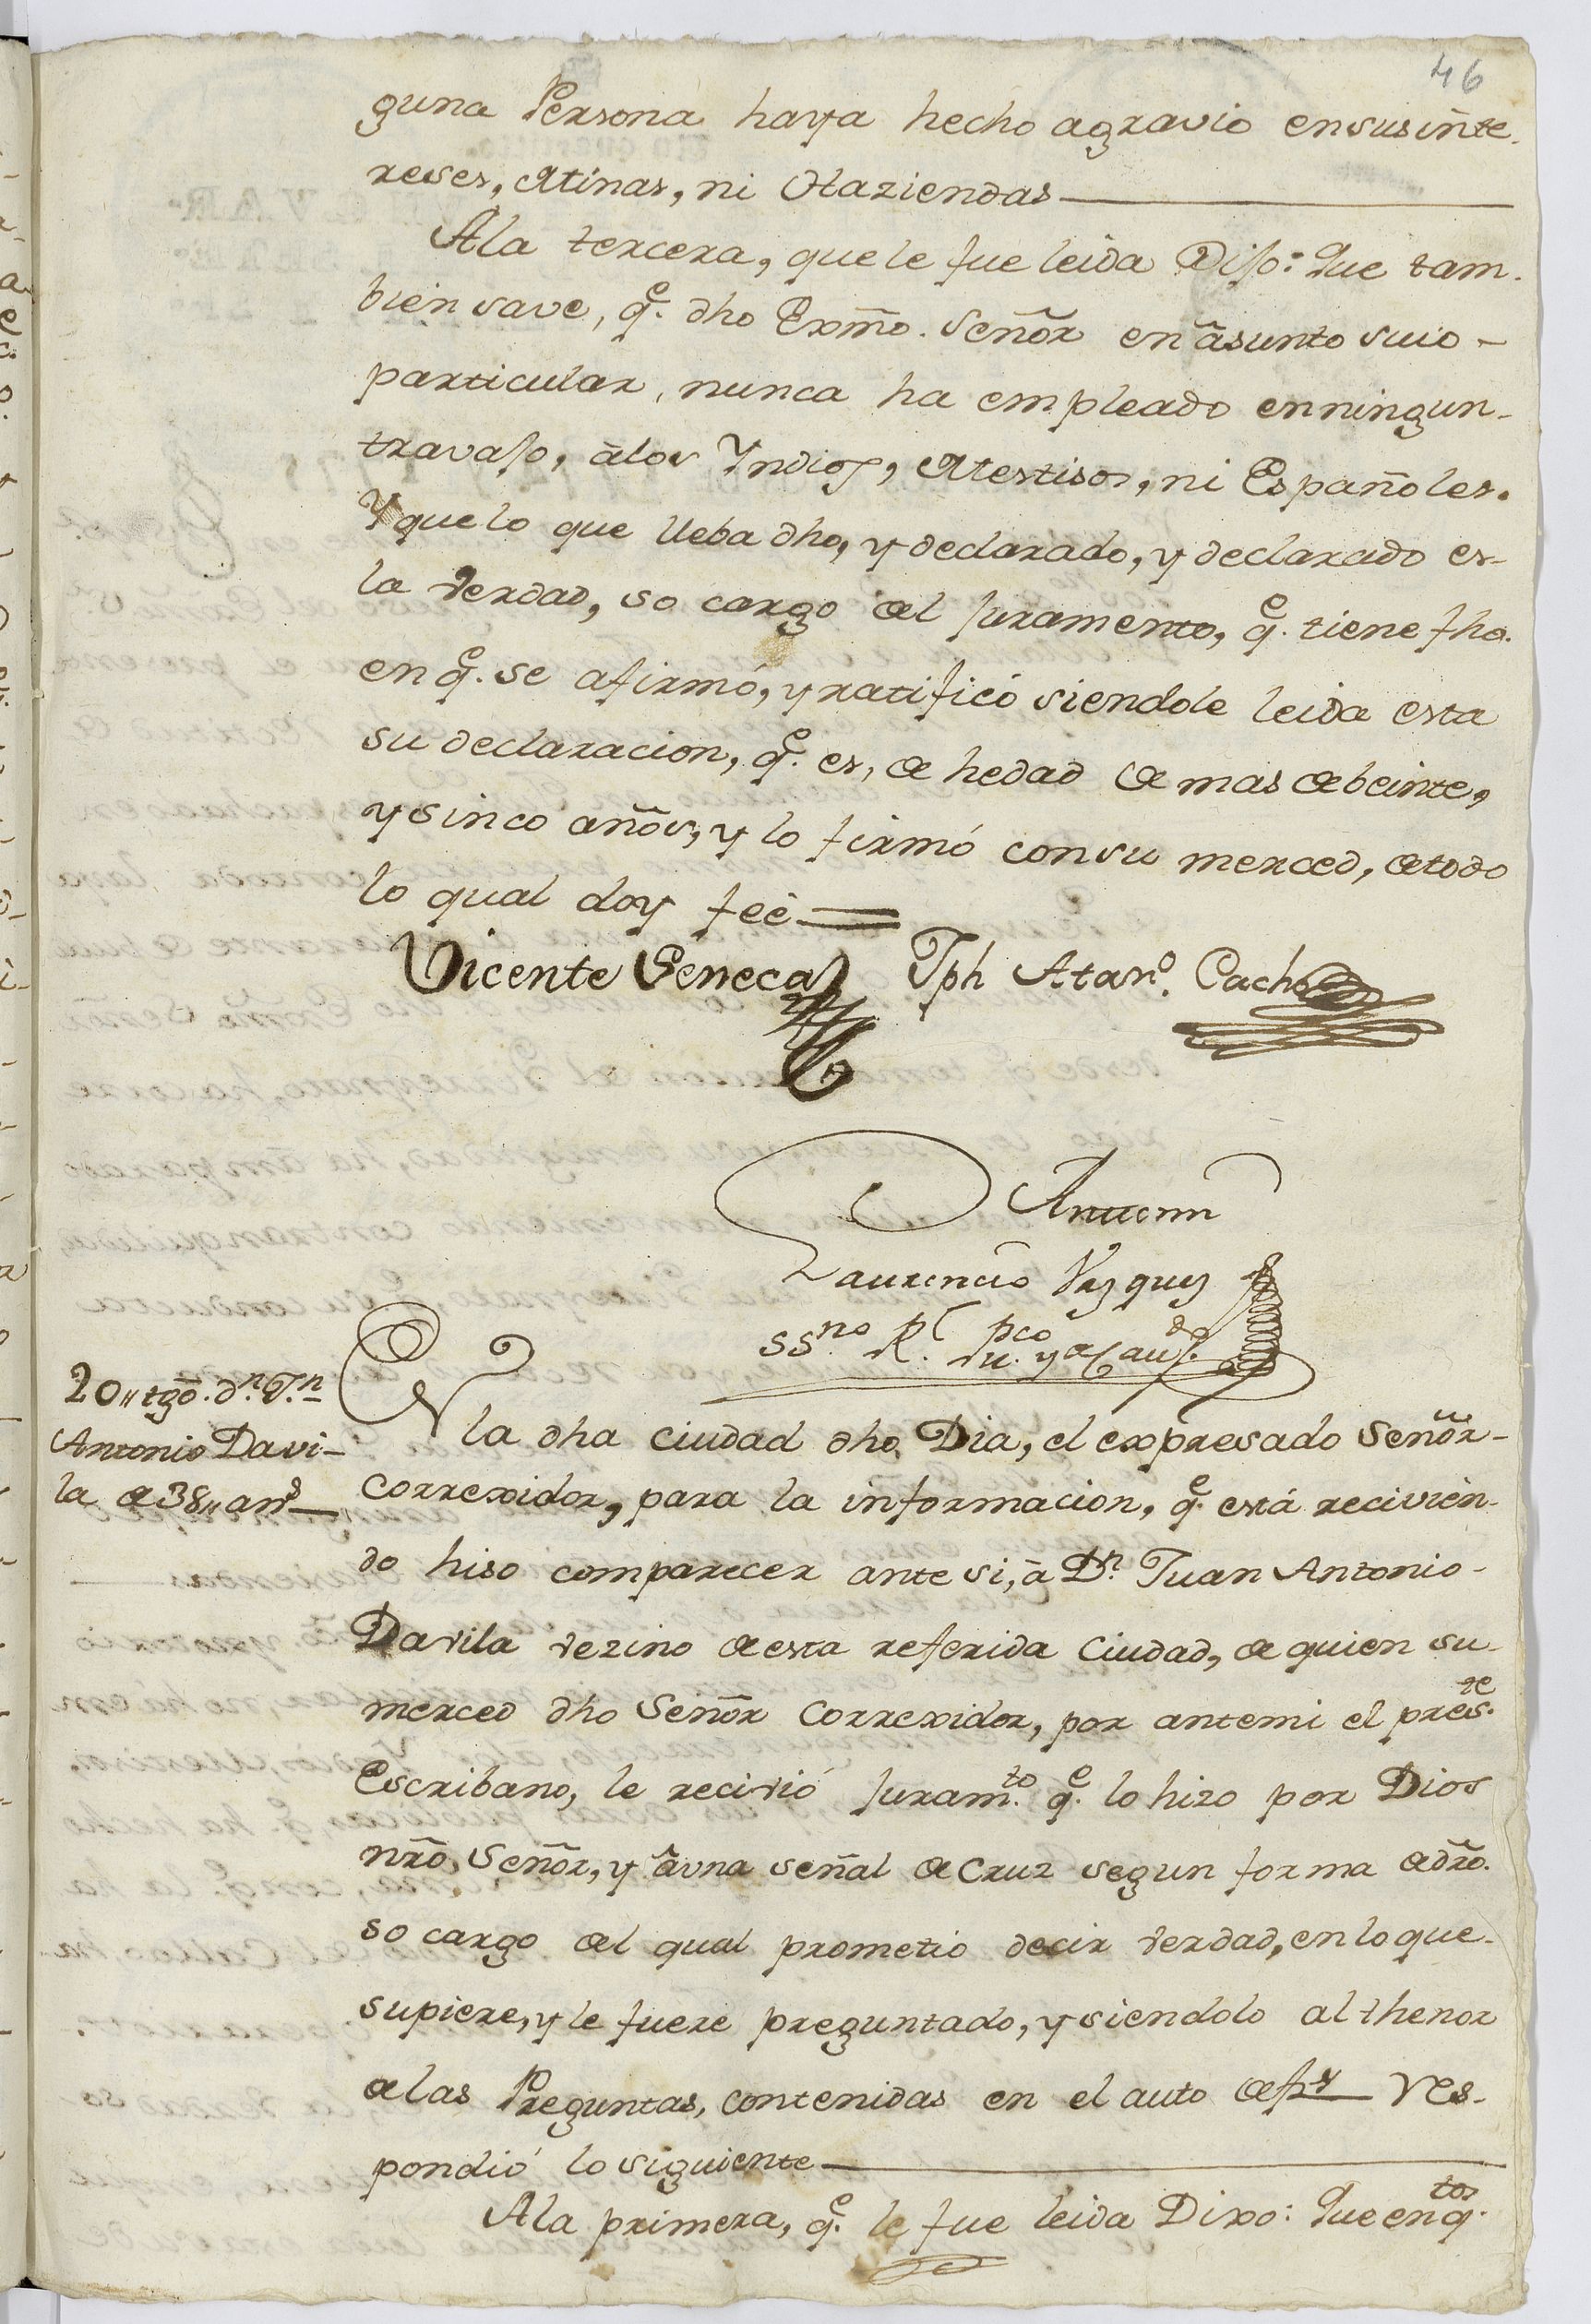 46
guna Persona haya hecho agravio ensusinte.
reses, Minas, ni Haziendas
Ala tercera, quele fue leida Dijo: Que tam.
bien save, q.e dho Exmõ. Señor en asunto suio -
particular, nunca ha empleado enningun-
travajo, àlos Yndios, Mestisos, ni Españoles.
Yquelo que lleba dho, y declarado, y declarado es-
la verdad, so cargo del juramento, q.e tiene fho.
en q.e se afirmó, yratificó siendole leida esta
su declaracion, q.e es, de hedad de mas debeinte,
ysinco años, y lo firmó consu merced, detodo
lo qual doy feè
Vicente Seneca Jph Atan.o Cacho
Antemi
Laurencio Vazquez
ss.no R.l pu.co y de Cav.do
20,, tgõ. dn. Jn.
Antonio Davi-
la de 38,, an.s
EN la dha ciudad dho Dia, el expresado Señor-
Correxidor, para la informacion, q.e está recivien-
do hiso comparecer ante si, à Dn. Juan Antonio-
Davila vezino deesta referida Ciudad, de quien su-
merced dho Señor Correxidor, por antemi el pres.te
Escribano, le recivió juram.to q.e lo hizo por Dios
nrõ Señor, y àvna señal de Cruz segun forma de drõ.
so cargo del qual prometio decir verdad, enloque-
supiere, yle fuere preguntado, ysiendolo althenor
delas Preguntas, contenidas en el auto de Res-
pondió lo siguiente
Ala primera, q.e le fue leida Dixo: Que enq.tos